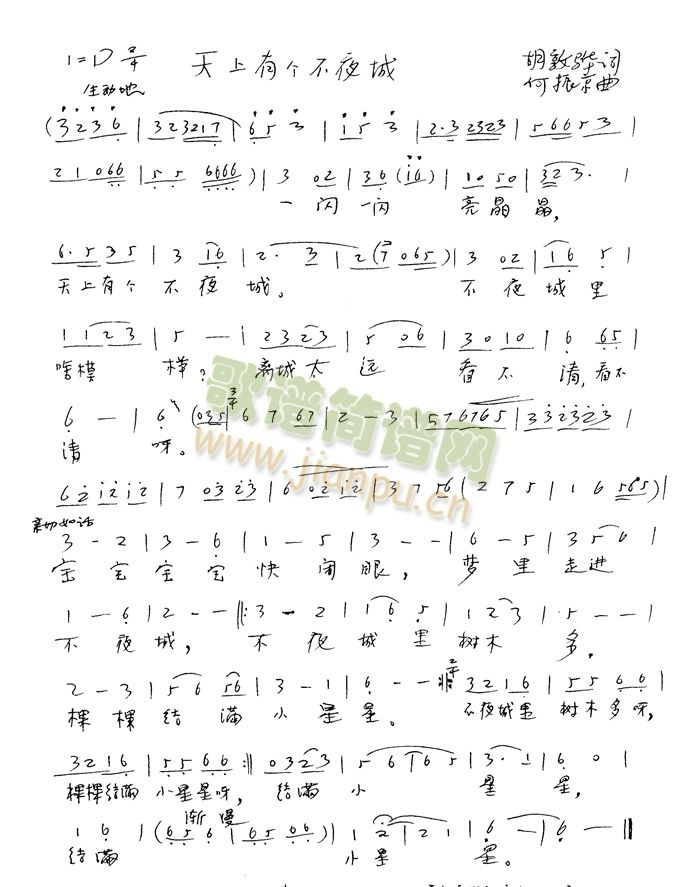 1=D 2/4 天上有个不夜城
胡敦骅词
何振京曲
生动地
(3 2 3 6 | 3 2 3 2 1 7 | 6 5 3 | i 5 3 | 2·3 2323 | 5 6 6 5 3 |
2 1 0 6 6 | 5 5 6666) | 3 0 2 | 3 6 (i 6) | 1 0 5 0 | 3 2 3· |
一 闪 一闪 亮 晶 晶,
6·5 3 5 | 3 1 6 | 2· 3 | 2 (7 0 6 5) | 3 0 2 | 1 6 5 |
天上有个 不 夜 城。 不 夜 城 里
1 1 2 3 | 5 — | 2 3 2 3 | 5 0 6 | 3 0 1 0 | 6 6 5 |
啥模 样? 离城太 远 看 不 清,看不
6 — | 6 (0 3 5 | 3/4 6 7 6 7 | 2 - 3 | 5 7 6 7 6 5 | 3 3 2 3 2 3 |
清 呀。
6 2 i 2 i 2 | 7 0 3 2 3 | 6 0 2 i 2 | 3 7 5 6 | 2 7 5 | 1 6 5 6 5) |
亲切如话
3 - 2 | 3 - 6 | 1 - 5 | 3 - - | 6 - 5 | 3 5 6 |
宝 宝 宝 宝 快 闭 眼, 梦 里 走进
1 - 6 | 2 - - ‖: 3 - 2 | 1 6 5 | 1 2 3 | 5 - - |
不 夜 城, 不 夜 城 里 树木 多。
2 - 3 | 5 6 5 6 | 3 - 1 | 6 - - :‖ 2/4 3 2 1 6 | 5 5 6 6 |
棵 棵 结 满 小 星 星。 不夜城里 树木多呀,
3 2 1 6 | 5 5 6 6 :‖ 0 3 2 3 | 5 6 | 6 5 | 3· 1 | 6 0 |
棵棵结满 小星星呀, 结满 小 星 星,
渐慢
1 6 | (6 5 6 | 6 5 6 6) | 1 2 | 2 1 | 6 — | 6 — ‖
结满 小星 星。
歌谱简谱网
www.jianpu.cn